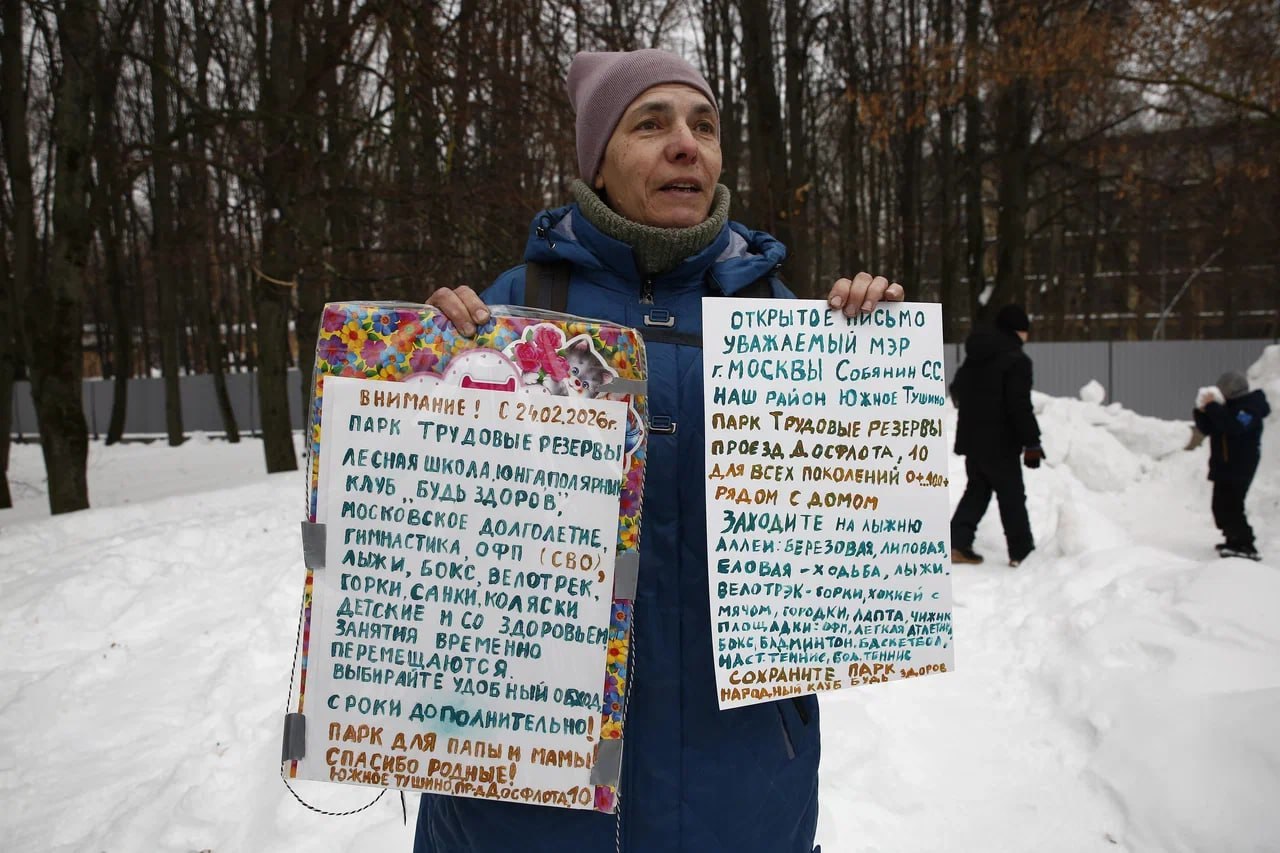 ВНИМАНИЕ! С 24.02.2026г.
ПАРК ТРУДОВЫЕ РЕЗЕРВЫ
ЛЕСНАЯ ШКОЛА, ЮНГА ПОЛЯРНЫХ
КЛУБ „БУДЬ ЗДОРОВ",
МОСКОВСКОЕ ДОЛГОЛЕТИЕ,
ГИМНАСТИКА, ОФП (СВО),
ЛЫЖИ, БОКС, ВЕЛОТРЕК,
ГОРКИ, САНКИ, КОЛЯСКИ
ДЕТСКИЕ И СО ЗДОРОВЬЕМ
ЗАНЯТИЯ ВРЕМЕННО
ПЕРЕМЕЩАЮТСЯ.
ВЫБИРАЙТЕ УДОБНЫЙ ОБХОД,
СРОКИ ДОПОЛНИТЕЛЬНО!
ПАРК ДЛЯ ПАПЫ И МАМЫ!
СПАСИБО РОДНЫЕ!
ЮЖНОЕ ТУШИНО, ПР-Д ДОСФЛОТА, 10
ОТКРЫТОЕ ПИСЬМО
УВАЖАЕМЫЙ МЭР
г. МОСКВЫ СОБЯНИН С.С.
НАШ РАЙОН ЮЖНОЕ ТУШИНО
ПАРК ТРУДОВЫЕ РЕЗЕРВЫ
ПРОЕЗД ДОСФЛОТА, 10
ДЛЯ ВСЕХ ПОКОЛЕНИЙ 0+..100+
РЯДОМ С ДОМОМ
ЗАХОДИТЕ НА ЛЫЖНЮ
АЛЛЕИ: БЕРЕЗОВАЯ, ЛИПОВАЯ,
ЕЛОВАЯ - ХОДЬБА, ЛЫЖИ,
ВЕЛОТРЭК - ГОРКИ, ХОККЕЙ С
МЯЧОМ, ГОРОДКИ, ЛАПТА, ЧИЖИК
ПЛОЩАДКИ: ОФП, ЛЕГКАЯ АТЛЕТИКА
БОКС, БАДМИНТОН, БАСКЕТБОЛ,
НАСТ. ТЕННИС, БОЛ. ТЕННИС
СОХРАНИТЕ ПАРК
НАРОДНЫЙ КЛУБ БУДЬ ЗДОРОВ